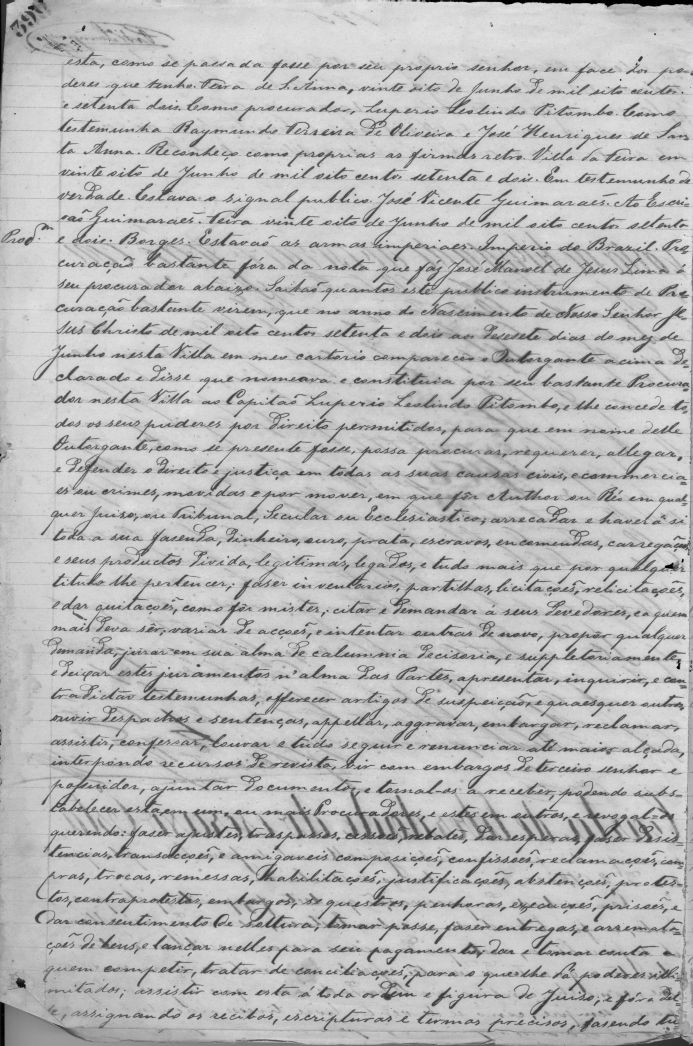 esta, como se passada fosse por seu proprio senhor, em face dos po=
deres que tenho. Feira de Sta Anna, vinte oito de Junho de mil oito centos
e setenta dois. Como procurador, Luperio Leolindo Pitombo. Como
testemunha Raymundo Ferreira de Oliveira e José Henriques de San=
ta Anna. Reconheço como proprias as firmas retro. Villa da Feira em
vinte oito de Junho de mil oito centos setenta e dois. Em testemunho de
verdade. Estava o signal publico. José Vicente Guimaraes. Ao Escri=
vão Guimaraes. Feira vinte oito de Junho de mil oito centos setenta
Procm e dois. Borges. Estavaõ as armas imperiaes. Imperio do Brazil. Pro
curaçaõ bastante fóra da nota que fáz José Manoel de Jesus Lima á
seu procurador abaixo. Saibaõ quantos este publico instrumento de Pro
curaçaõ bastante virem, que no anno do Nascimento de Nosso Senhor Je
sus Christo de mil oito centos setenta e dois aos desesete dias do mez de
Junho nesta Villa em meu cartorio compareceo o Outorgante acima de=
clarado e disse que nomeava e constituia por seu bastante Procura
dor nesta Villa ao Capitaõ Luperio Leolindo Pitombo, e lhe concede to
dos os seus puderes por Direito permitidos, para que em nome delle
Outorgante, como se presente fosse, possa procurar, requerer, allegar,
e Defender o Direito e justiça em todas as suas causas civis, e commercia=
es ou crimes, movidas e por mover, em que fôr Author ou Réo em qual=
quer Juiso, ou Tribunal, Secular ou Ecclesiastico; arrecadar e haver á si
toda a sua fasenda, Dinheiro, ouro, prata, escravos, encomendas, carregaçoẽs
e seus productos Divida, legitimas, legados, e tudo mais que por qualquer
titulo lhe pertencer; faser inventarios, partilhas, licitações, relicitações,
e dar quitaçoẽs, como fôr mister; citar e demandar á seus Devedores, e a quem
mais deva sêr, variar de acçoẽs, e intentar outras de novo, propôr qualquer
Demanda, jurar em sua alma de calumnia Decisoria, e suppletoriamente,
e deixar estes juramentos n'alma das Partes, apresentar, inquirir, e con=
tradictar testemunhas, offerecer artigos de suspeiçaõ, e quaesquer outros,
ouvir Despachos e sentenças, appellar, aggravar, embargar, reclamar,
assistir, confessar, louvar e tudo seguir e renunciar até maior alçada,
interpondo recursos de revista, vir com embargos de terceiro senhor e
possuidor, ajuntar Documentos, e tornal-os a receber, podendo subs=
tabelecer esta em um, ou mais Procuradores, e estes em outros, e revogal=os
querendo: faser ajustes, traspasses, cessões, rebates, dar esperas, faser Desis=
tencias, transacçoẽs, e amigaveis composiçoẽs, confissoẽs, reclamaçoẽs, com
pras, trocas, remessas, habilitaçoẽs, justificaçoẽs, abstençoẽs, protes=
tos, contraprotestos, embargos, sequestros, penhoras, execuçoẽs, prisoẽs, e
dar consentimento de soltura, tomar posse, faser entregas, e arremata=
çoẽs de bens, e lançar nelles para seu pagamento, dar e tomar conta a
quem competir, tratar de conciliaçoẽs, para o que lhe dá poderes illi=
mitados; assistir com esta á toda ordem e figura de Juiso, e fóra del
le, assignando os recibos, escripturas e termos precisos, fasendo tu